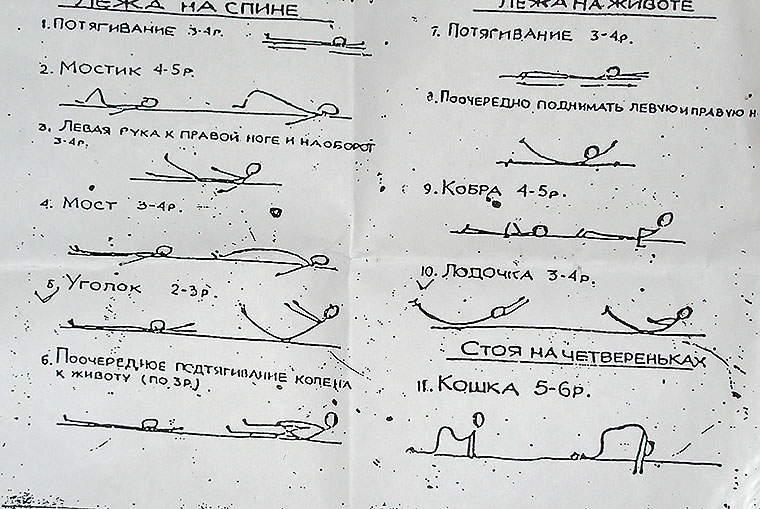 ЛЕЖА НА СПИНЕ
1. ПОТЯГИВАНИЕ 3-4р.
2. МОСТИК 4-5р.
3. ЛЕВАЯ РУКА К ПРАВОЙ НОГЕ И НАОБОРОТ
3-4р.
4. МОСТ 3-4р.
5. УГОЛОК 2-3р.
6. ПООЧЕРЕДНОЕ ПОДТЯГИВАНИЕ КОЛЕНА
К ЖИВОТУ (ПО 3р.)
ЛЕЖА НА ЖИВОТЕ
7. ПОТЯГИВАНИЕ 3-4р.
8. ПООЧЕРЕДНО ПОДНИМАТЬ ЛЕВУЮ И ПРАВУЮ Н
9. КОБРА 4-5р.
10. ЛОДОЧКА 3-4р.
СТОЯ НА ЧЕТВЕРЕНЬКАХ
11. КОШКА 5-6р.